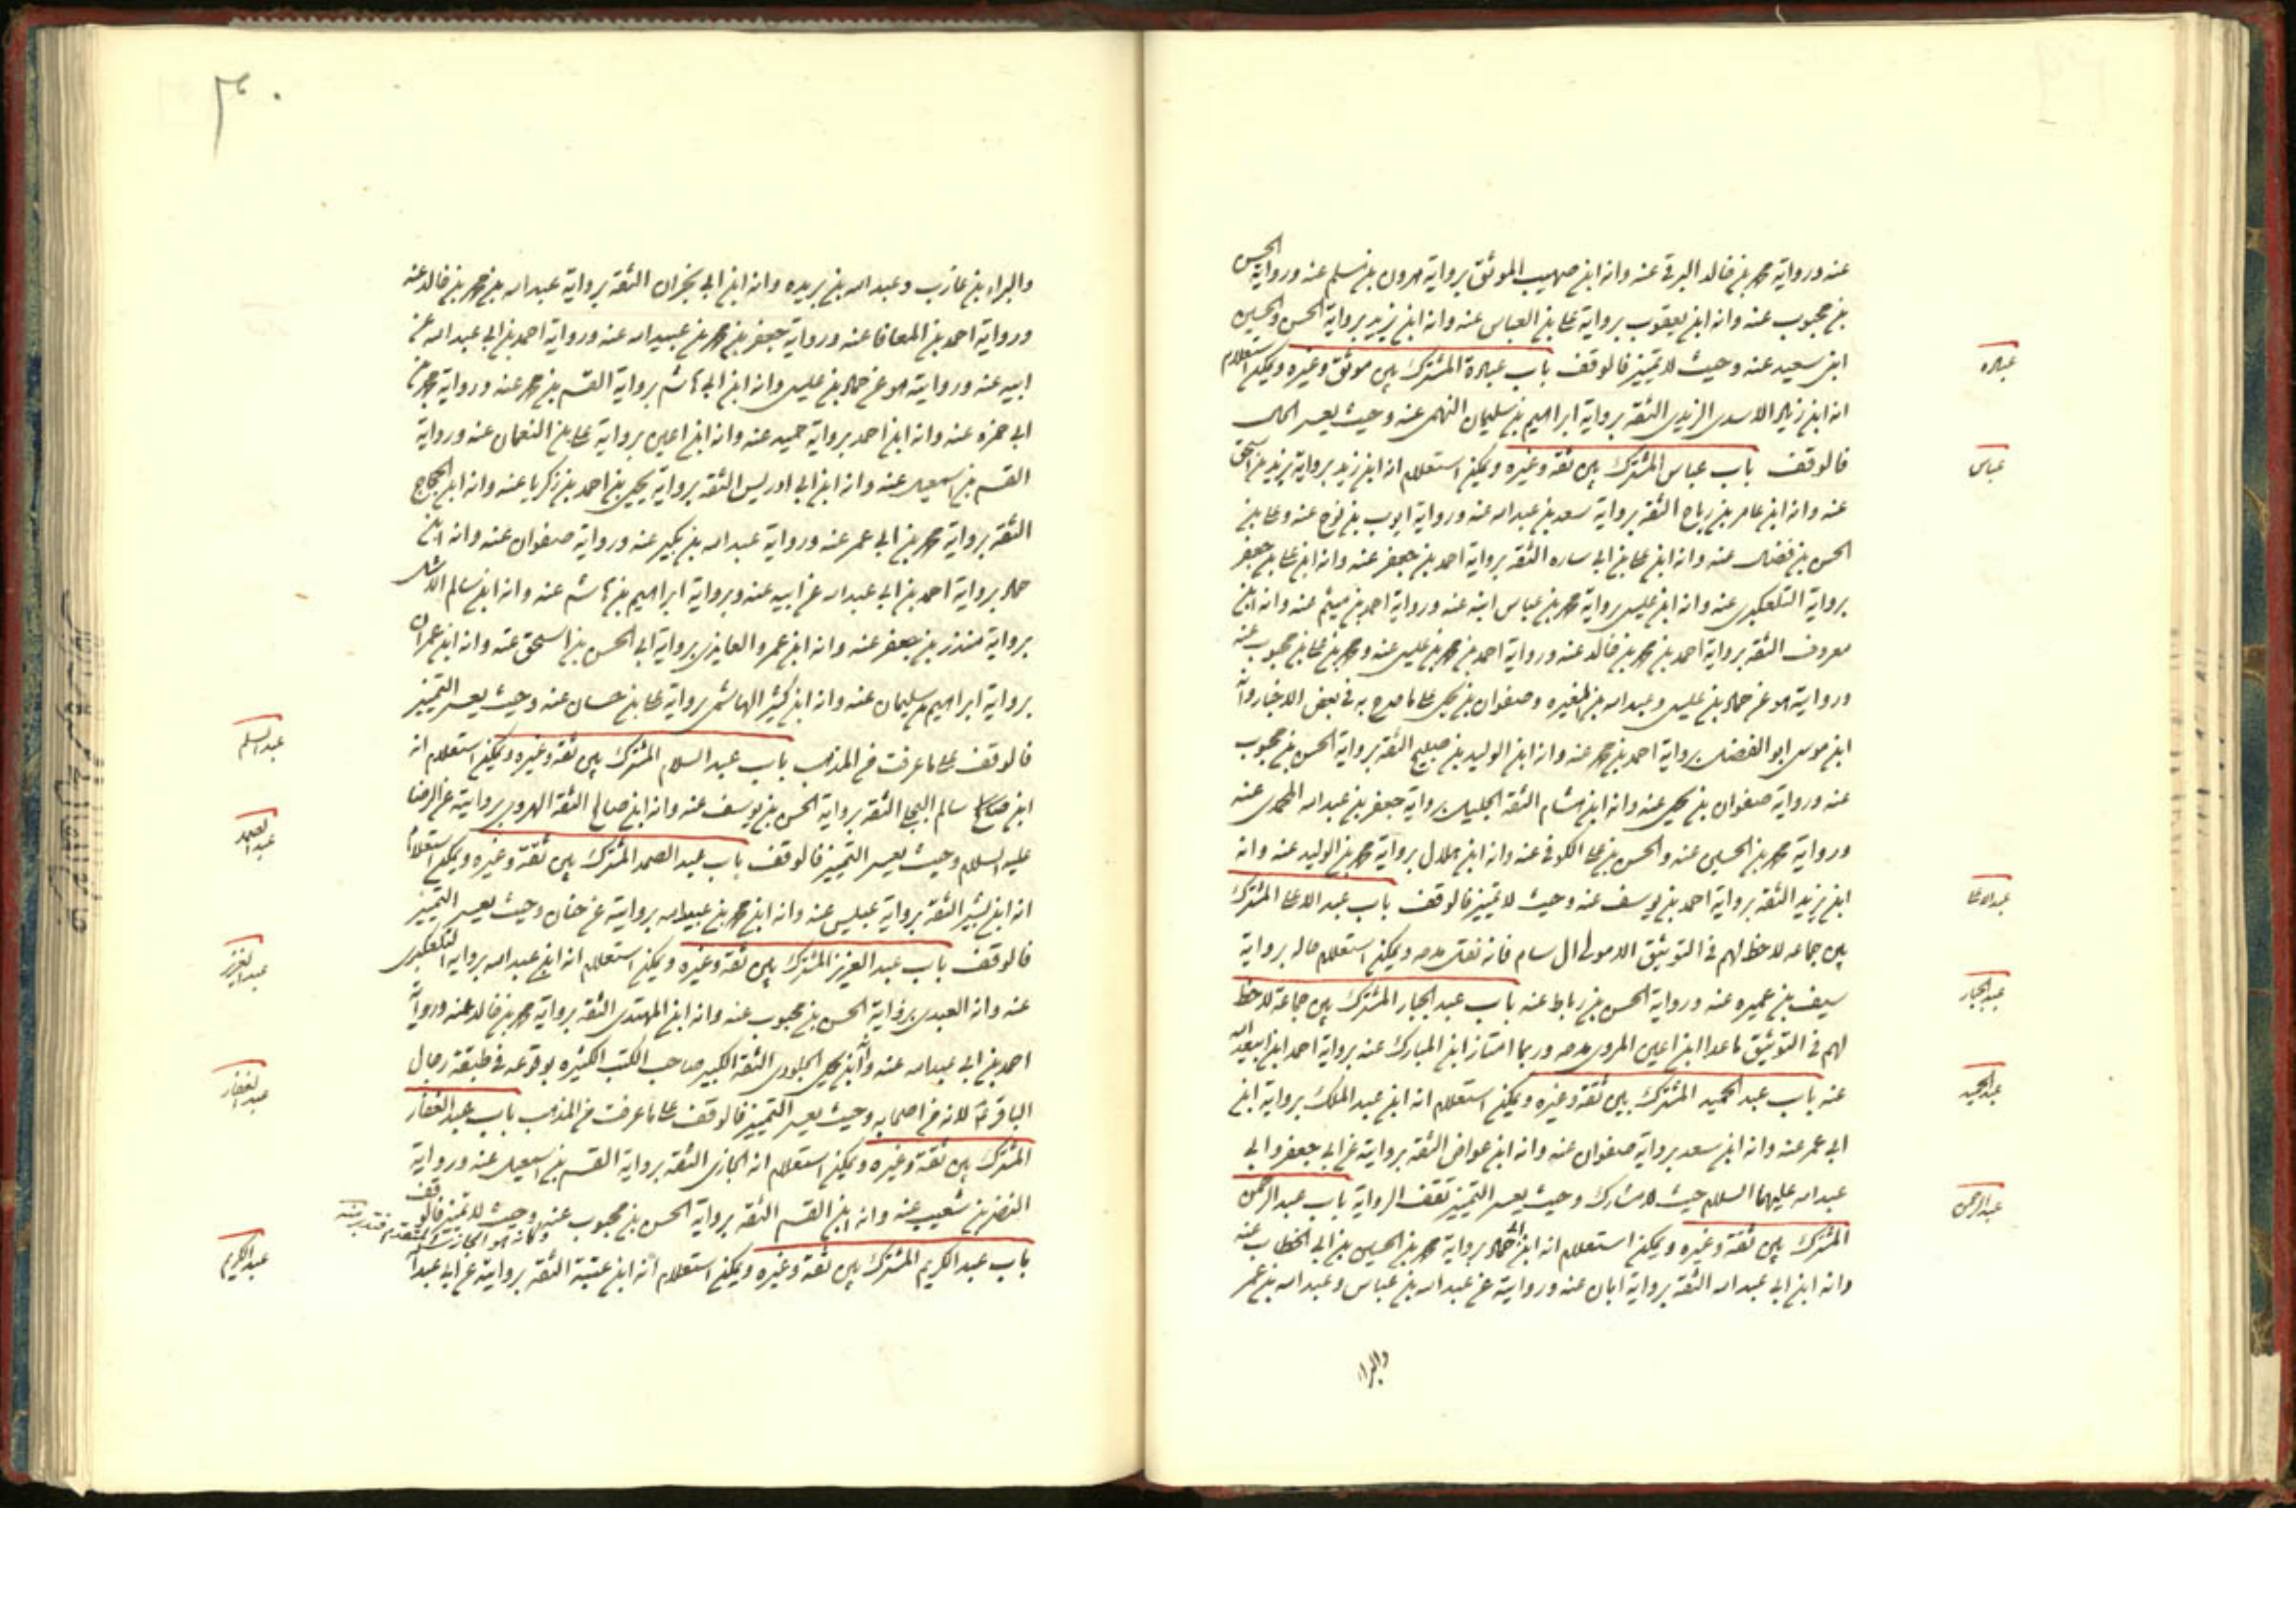 عنه ورواية محمد بن خالد البرقي عنه وانه ابن صهيب الموثق برواية هرون بن مسلم عنه ورواية الحسن
بن محبوب عنه وانه ابن يعقوب برواية علي بن العباس عنه وانه ابن يزيد برواية الحسن والحسين
ابني سعيد عنه وحيث لا تميز فالوقف باب عبادة المشترك بين موثق وغيره ويمكن استعلام
عباده
انه ابن زياد الاسدي الزيدي الثقة برواية ابراهيم بن سليمان النهمي عنه وحيث يعسر الحال
فالوقف باب عباس المشترك بين ثقة وغيره ويمكن استعلام انه ابن زيد برواية يزيد بن اسحق
عباس
عنه وانه ابن عامر بن رباح الثقة برواية سعد بن عبد الله عنه ورواية ايوب بن نوح عنه وعلي بن
الحسن بن فضال عنه وانه ابن علي بن ابي ساره الثقة برواية احمد بن جعفر عنه وانه ابن علي بن جعفر
برواية التلعكبري عنه وانه ابن عيسى برواية محمد بن عباس ابنه عنه ورواية احمد بن ميثم عنه وانه ابن
معروف الثقة برواية احمد بن محمد بن خالد عنه ورواية احمد بن محمد بن عيسى عنه ومحمد بن علي بن محبوب عنه
وروايته هو عن حماد بن عيسى وعبد الله بن المغيره وصفوان بن يحيى على ما صرح به في بعض الاخبار وانه
ابن موسى ابو الفضل برواية احمد بن محمد عنه وانه ابن الوليد بن صبيح الثقة برواية الحسن بن محبوب
عنه ورواية صفوان بن يحيى عنه وانه ابن هشام الثقة الجليل برواية جعفر بن عبد الله المحمدي عنه
ورواية محمد بن الحسين عنه والحسن بن علي الكوفي عنه وانه ابن هلال برواية محمد بن الوليد عنه وانه
ابن يزيد الثقة برواية احمد بن يوسف عنه وحيث لا تميز فالوقف باب عبد الاعلى المشترك
عبد الاعلى
بين جماعه لا حظ لهم في التوثيق الا مولى ال سام فانه نقل مدحه ويمكن استعلام حاله برواية
سيف بن عميره عنه ورواية الحسن بن رباط عنه باب عبد الجبار المشترك بين جماعة لا حظ
عبد الجبار
لهم في التوثيق ما عدا ابن اعين المروي مدحه وربما امتاز ابن المبارك عنه برواية احمد ابن ابي عبد الله
عنه باب عبد الحميد المشترك بين ثقة وغيره ويمكن استعلام انه ابن عبد الملك برواية ابن
عبد الحميد
ابي عمر عنه وانه ابن سعد برواية صفوان عنه وانه ابن عواض الثقة بروايته عن ابي جعفر وابي
عبد الله عليهما السلام حيث لا مشارك وحيث يعسر التميز تقف الرواية باب عبد الرحمن
عبد الرحمن
المشترك بين ثقة وغيره ويمكن استعلام انه ابن ابي حماد برواية محمد بن الحسين بن ابي الخطاب عنه
وانه ابن ابي عبد الله الثقة برواية ابان عنه وروايته عن عبد الله بن عباس وعبد الله بن عمر
والبراء
٣٠
والبراء بن عازب وعبد الله بن بريده وانه ابن ابي نجران الثقة برواية عبد الله بن محمد بن خالد عنه
ورواية احمد بن المعافا عنه ورواية جعفر بن محمد بن عبيد الله عنه ورواية احمد بن ابي عبد الله عن
ابيه عنه وروايته هو عن حماد بن عيسى وانه ابن ابي هاشم برواية القسم بن محمد عنه ورواية محمد بن
ابي حمزه عنه وانه ابن احمد برواية حميد عنه وانه ابن اعين برواية علي بن النعمان عنه ورواية
القسم بن اسمعيل عنه وانه ابن ابي ادريس الثقة برواية يحيى بن احمد بن زكريا عنه وانه ابن الحجاج
الثقة برواية محمد بن ابي عمر عنه ورواية عبد الله بن بكير عنه ورواية صفوان عنه وانه ابن
حماد برواية احمد بن ابي عبد الله عن ابيه عنه وبرواية ابراهيم بن هاشم عنه وانه ابن سالم الاشل
برواية منذر بن جعفر عنه وانه ابن عمرو العايذي برواية ابي الحسن بن اسحق عنه وانه ابن عمران
برواية ابراهيم بن سليمان عنه وانه ابن كثير الهاشمي برواية علي بن حسان عنه وحيث يعسر التميز
فالوقف على ما عرفت من المذهب باب عبد السلام المشترك بين ثقة وغيره ويمكن استعلام انه
عبد السلم
ابن سالم البجلي الثقة برواية الحسن بن يوسف عنه وانه ابن صالح الثقة الهروي بروايته عن الرضا
عليه السلام وحيث يعسر التميز فالوقف باب عبد الصمد المشترك بين ثقة وغيره ويمكن استعلام
عبد الصمد
انه ابن بشير الثقة برواية عبيس عنه وانه ابن محمد بن عبيد الله بروايته عن حنان وحيث يعسر التميز
فالوقف باب عبد العزيز المشترك بين ثقة وغيره ويمكن استعلام انه ابن عبد الله برواية التلعكبري
عبد العزيز
عنه وانه العبدي برواية الحسن بن محبوب عنه وانه ابن المهتدي الثقة برواية محمد بن خالد عنه ورواية
احمد بن ابي عبد الله عنه وانه ابن يحيى الجلودي الثقة الكبير صاحب الكتب الكثيره بوقوعه في طبقة رجال
الباقر ع لانه من اصحابه وحيث يعسر التميز فالوقف على ما عرفت من المذهب باب عبد الغفار
عبد الغفار
المشترك بين ثقة وغيره ويمكن استعلام انه الجازي الثقة برواية القسم بن اسمعيل عنه ورواية
النضر بن شعيب عنه وانه ابن القسم الثقة برواية الحسن بن محبوب عنه وحيث لا تميز فالوقف
وكانه هو الجازي المتقدم فتدبر منه
باب عبد الكريم المشترك بين ثقة وغيره ويمكن استعلام انه ابن عتبة الثقة بروايته عن ابي عبد الله
عبد الكريم